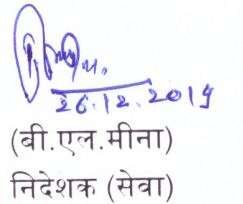 26.12.2019
(बी.एल.मीना)
निदेशक (सेवा)